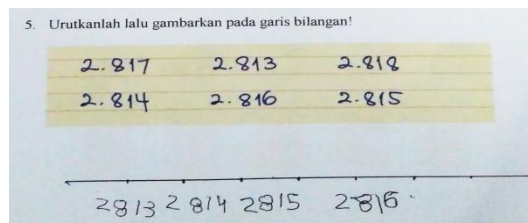 5. Urutkanlah lalu gambarkan pada garis bilangan!
2.817 2.813 2.818
2.814 2.816 2.815
2813 2814 2815 2816